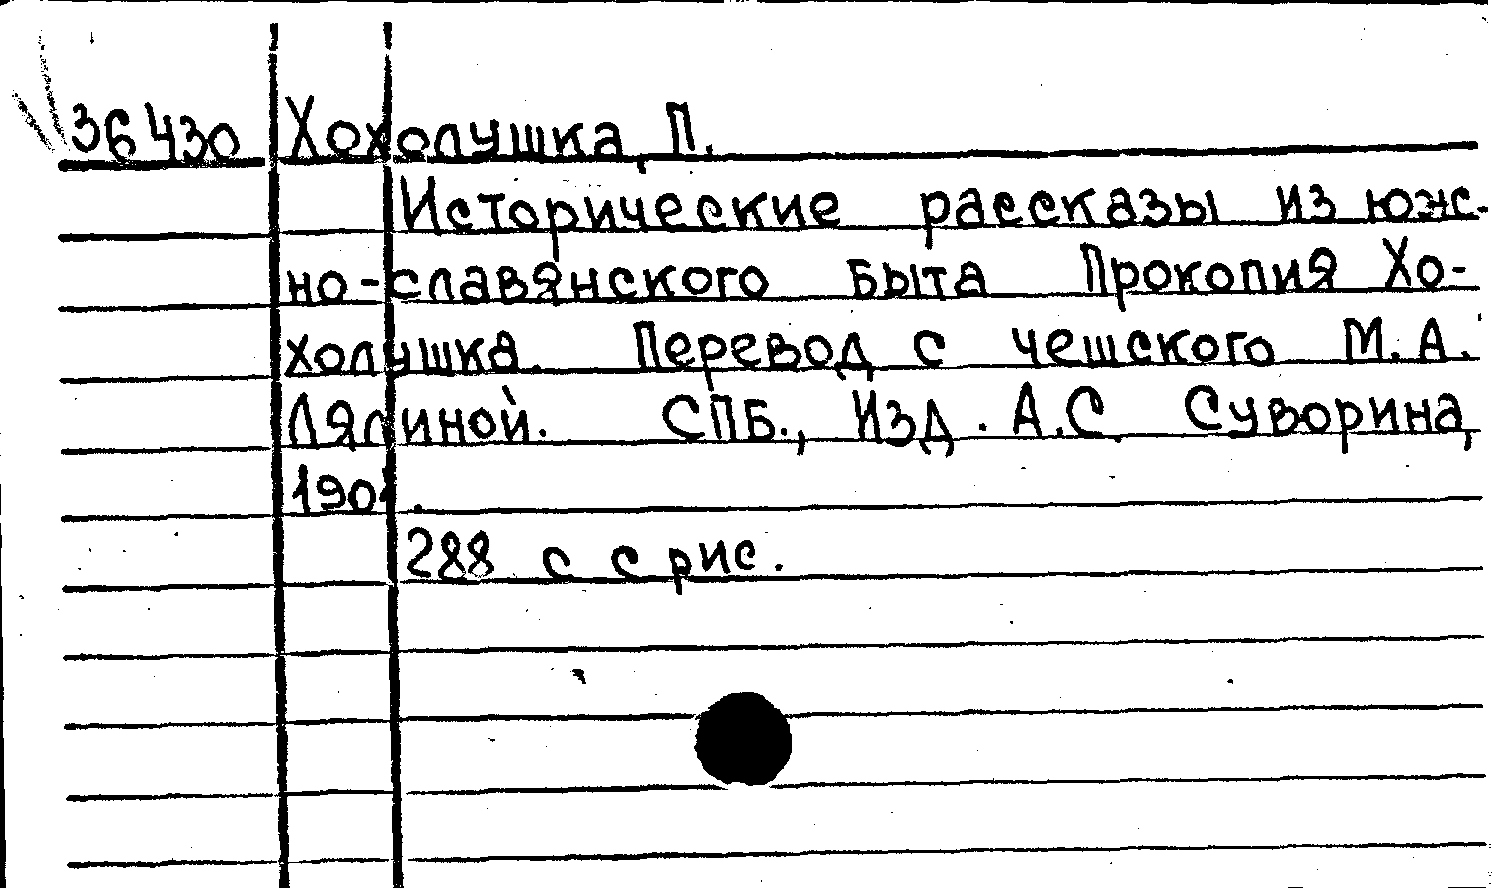 36430 Хохолушка, П.
Исторические рассказы из южс-
но-славянского быта Прокопия Хо-
холушка. Перевод с чешского М.А.
Лялиной. СПБ., Изд. А.С. Суворина,
1901.
288 с с рис.